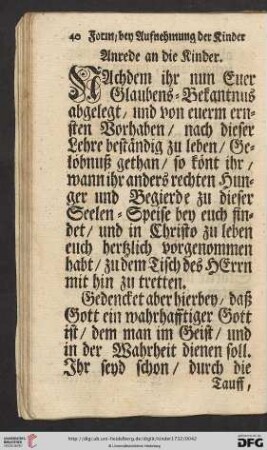 40 Form, bey Aufnehmung der Kinder
Anrede an die Kinder.
NAchdem ihr nun Euer
Glaubens-Bekantnus
abgelegt / und von euerm ern-
sten Vorhaben / nach dieser
Lehre beständig zu leben / Ge-
löbnuß gethan / so könt ihr /
wann ihr anders rechten Hun-
ger und Begierde zu dieser
Seelen-Speise bey euch fin-
det / und in Christo zu leben
euch hertzlich vorgenommen
habt / zu dem Tisch des HErrn
mit hin zu tretten.
Gedencket aber hierbey / daß
Gott ein wahrhafftiger Gott
ist / dem man im Geist / und
in der Wahrheit dienen soll.
Ihr seyd schon / durch die
Tauff,
UNIVERSITÄTS-
BIBLIOTHEK
HEIDELBERG
http://digi.ub.uni-heidelberg.de/diglit/kinder1732/0042
© Universitätsbibliothek Heidelberg
gefördert durch die
DFG